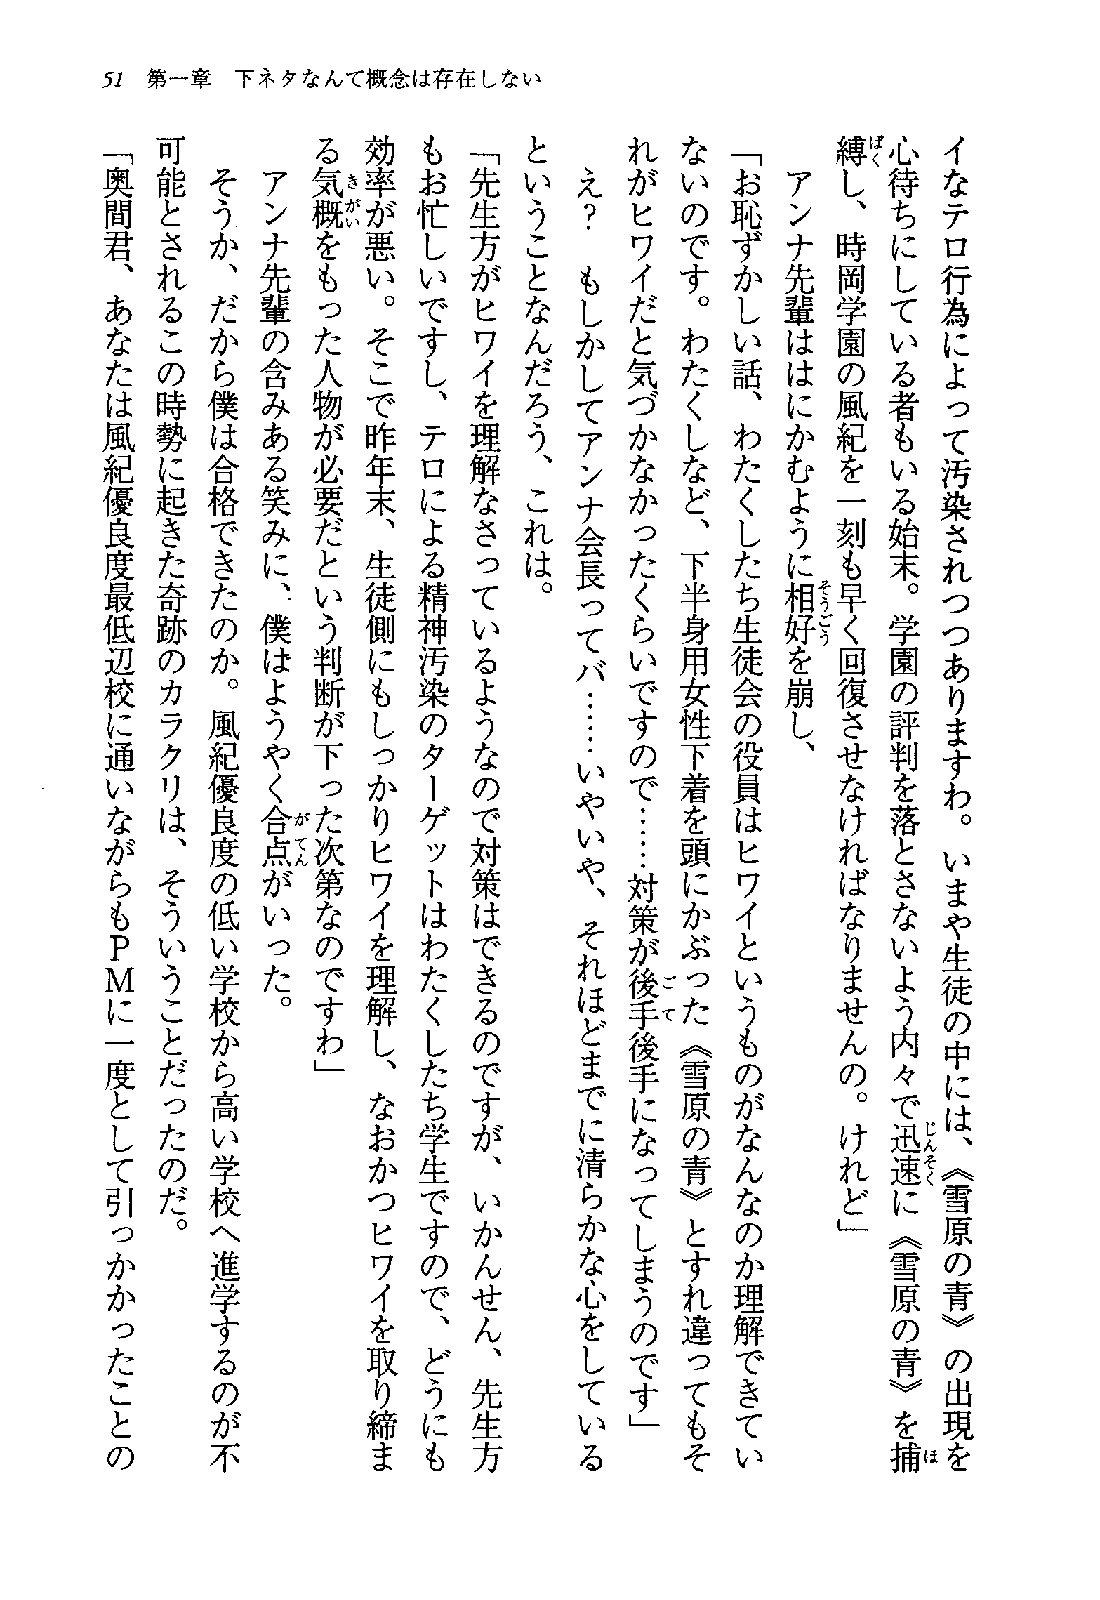 51 第一章 下ネタなんて概念は存在しない
イなテロ行為によって汚染されつつありますわ。いまや生徒の中には、《雪原の青》の出現を
心待ちにしている者もいる始末。学園の評判を落とさないよう内々で迅速に《雪原の青》を捕
縛し、時岡学園の風紀を一刻も早く回復させなければなりませんの。けれど」
アンナ先輩ははにかむように相好を崩し、
「お恥ずかしい話、わたくしたち生徒会の役員はヒワイというものがなんなのか理解できてい
ないのです。わたくしなど、下半身用女性下着を頭にかぶった《雪原の青》とすれ違ってもそ
れがヒワイだと気づかなかったくらいですので……対策が後手後手になってしまうのです」
え？　もしかしてアンナ会長ってバ……いやいや、それほどまでに清らかな心をしている
ということなんだろう、これは。
「先生方がヒワイを理解なさっているようなので対策はできるのですが、いかんせん、先生方
もお忙しいですし、テロによる精神汚染のターゲットはわたくしたち学生ですので、どうにも
効率が悪い。そこで昨年末、生徒側にもしっかりヒワイを理解し、なおかつヒワイを取り締ま
る気概をもった人物が必要だという判断が下った次第なのですわ」
アンナ先輩の含みある笑みに、僕はようやく合点がいった。
そうか、だから僕は合格できたのか。風紀優良度の低い学校から高い学校へ進学するのが不
可能とされるこの時勢に起きた奇跡のカラクリは、そういうことだったのだ。
「奥間君、あなたは風紀優良度最低辺校に通いながらもＰＭに一度として引っかかったことの